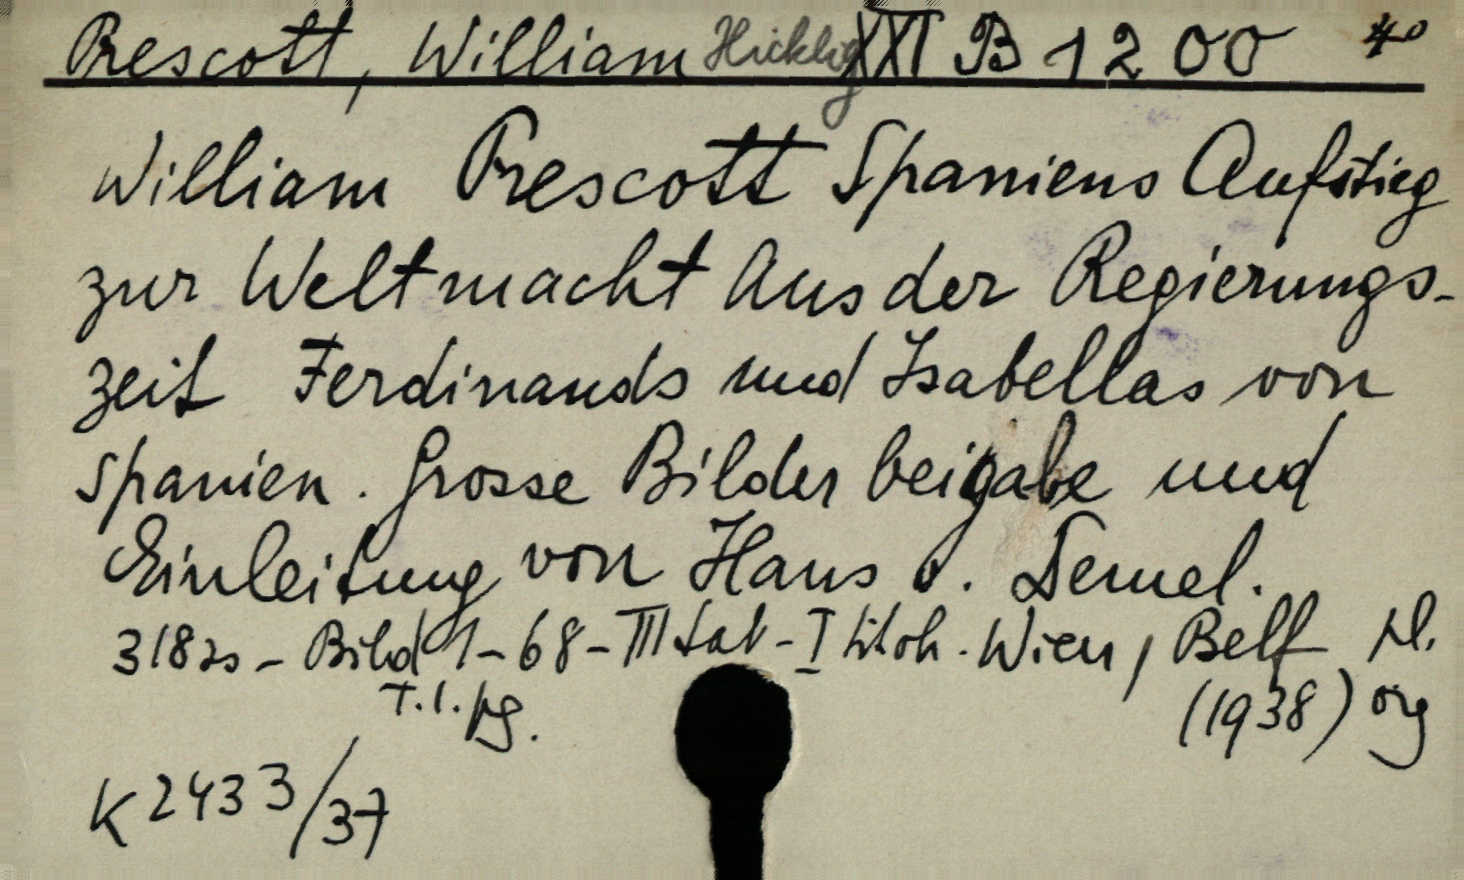 Prescott, William Hicklig XXI B 1200 4°
William Prescott Spaniens Aufstieg
zur Weltmacht Aus der Regierungs-
zeit Ferdinands und Isabellas von
Spanien. Grosse Bilder beigabe und
Einleitung von Hans v. Demel.
318 zs - Bild 1-68-III taf - I Litoh. Wien, Belf
T.1. pg. (1938) org
K 2433/37